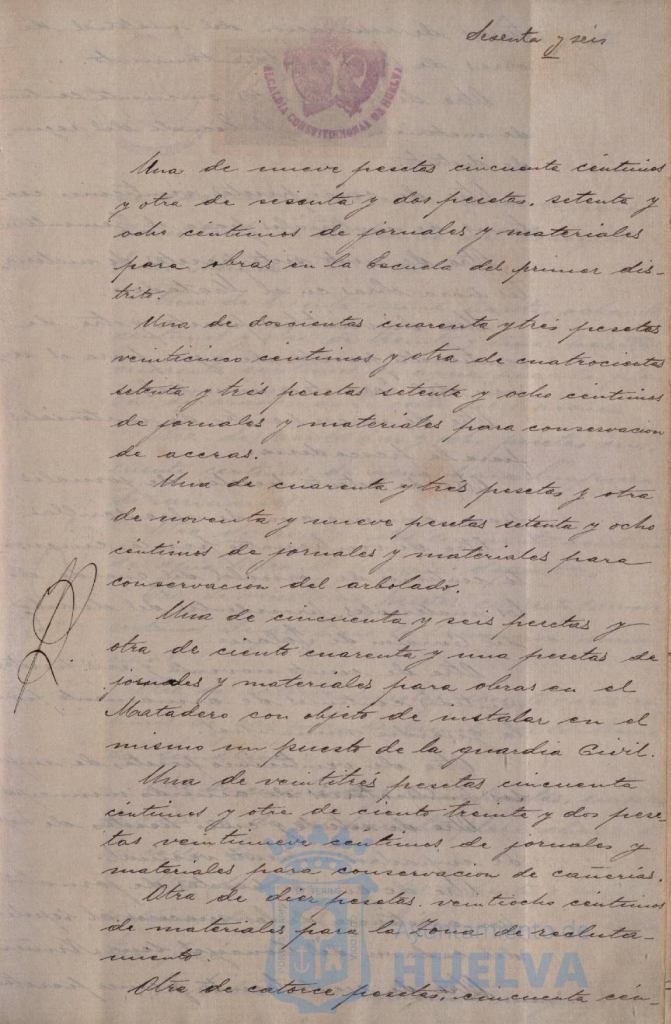 Sesenta y seis
ALCALDIA CONSTITUCIONAL DE HUELVA
Una de nueve pesetas cincuenta céntimos
y otra de sesenta y dos pesetas, setenta y
ocho céntimos de jornales y materiales
para obras en la Escuela del primer dis-
trito.
Una de doscientas cuarenta y tres pesetas
veinticinco céntimos y otra de cuatrocientas
setenta y tres pesetas setenta y ocho céntimos
de jornales y materiales para conservacion
de aceras.
Una de cuarenta y tres pesetas y otra
de noventa y nueve pesetas setenta y ocho
céntimos de jornales y materiales para
conservacion del arbolado.
Una de cincuenta y seis pesetas y
otra de ciento cuarenta y una pesetas de
jornales y materiales para obras en el
Matadero con objeto de instalar en el
mismo un puesto de la guardia Civil.
Una de veintitrés pesetas cincuenta
céntimos y otra de ciento treinta y dos pese-
tas veintinueve centimos de jornales y
materiales para conservacion de cañerías.
Otra de diez pesetas veintiocho céntimos
de materiales para la Zona de recluta-
miento.
Otra de catorce pesetas, cincuenta cén-
Ayuntamiento de
HUELVA